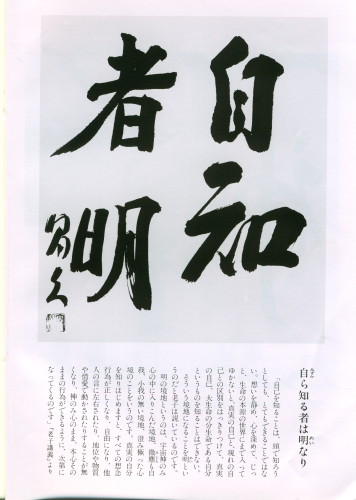 自知
者明
昌久
自ら知る者は明なり
「自己を知ることは、頭で知ろう
としても、とてもできることではな
い。想いを静め、行を深めて、
と、生命の本源の世界にまで入って
ゆかないと、真実の自己と、現れの自
己との区別をはっきりつけて、真実
の自己、大生命の分生命である自分
というものを知ることはできない。
そういう境地になることを明とい
うのだと老子は説いているのです。
明の境地というのは、宇宙神のみ
心の中に入りこんだ境地、微塵も自
我、小我の無い境地、澄み極った心
境のことをいうので、真実の自分
を知りはじめますと、すべての想念
行為が正しくなり、自由になり、他
人の言に左右されたり、地位や物質
や情愛で動かされたりする心が無
くなり、神のみ心のまま、本心の
ままの行為ができるように、次第に
なってくるのです」『老子講義』より